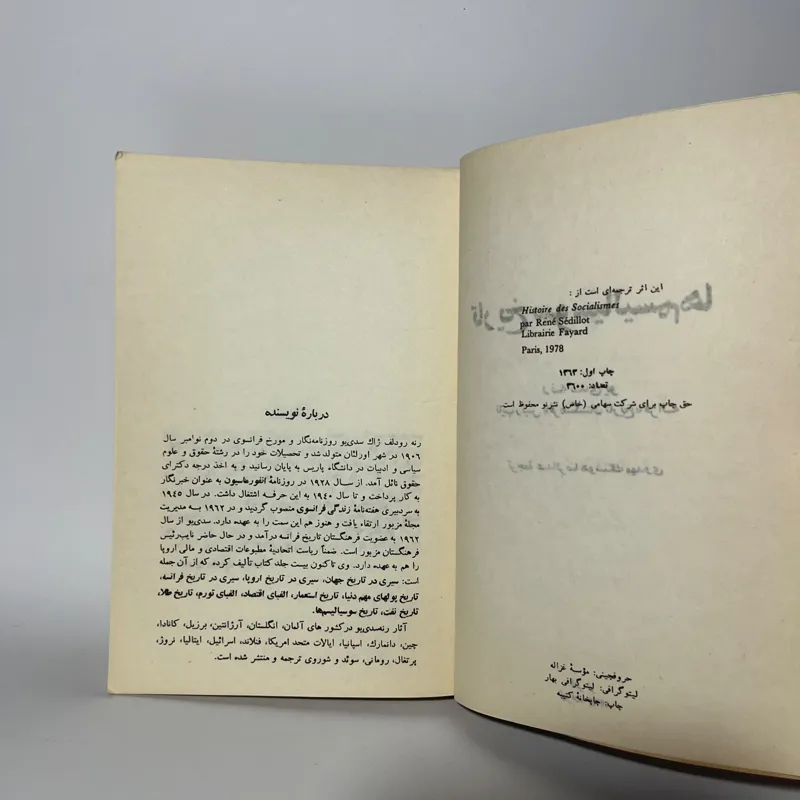 این اثر ترجمه‌ای است از :
Histoire des Socialismes
par René Sédillot
Librairie Fayard
Paris, 1978
چاپ اول: ۱۳۶۳
تعداد: ۳۶۰۰
حق چاپ برای شرکت سهامی (خاص) نشرنو محفوظ است.
حروفچینی: مؤسسهٔ غزاله
لیتوگرافی: لیتوگرافی بهار
چاپ: چاپخانهٔ کتیبه
دربارهٔ نویسنده
رنه رودلف ژاك سدی‌یو روزنامه‌نگار و مورخ فرانسوی در دوم نوامبر سال
۱۹۰۶ در شهر اورلئان متولد شد و تحصیلات خود را در رشتهٔ حقوق و علوم
سیاسی و ادبیات در دانشگاه پاریس به پایان رسانید و به اخذ درجه دکترای
حقوق نائل آمد. از سال ۱۹۲۸ در روزنامهٔ انفورماسیون به عنوان خبرنگار
به کار پرداخت و تا سال ۱۹۴۰ به این حرفه اشتغال داشت. در سال ۱۹۴۵
به سردبیری هفته‌نامهٔ زندگی فرانسوی منصوب گردید و در ۱۹۶۲ به مدیریت
مجلهٔ مزبور ارتقاء یافت و هنوز هم این سمت را به عهده دارد. سدی‌یو از سال
۱۹۶۲ به عضویت فرهنگستان تاریخ فرانسه درآمد و در حال حاضر نایب‌رئیس
فرهنگستان مزبور است. ضمناً ریاست اتحادیهٔ مطبوعات اقتصادی و مالی اروپا
را هم به عهده دارد. وی تاکنون بیست جلد کتاب تألیف کرده که از آن جمله
است: سیری در تاریخ جهان، سیری در تاریخ اروپا، سیری در تاریخ فرانسه،
تاریخ پولهای مهم دنیا، تاریخ استعمار، الفبای اقتصاد، الفبای تورم، تاریخ طلا،
تاریخ نفت، تاریخ سوسیالیسم‌ها.
آثار رنه‌سدی‌یو درکشور های آلمان، انگلستان، آرژانتین، برزیل، کانادا،
چین، دانمارك، اسپانیا، ایالات متحد امریکا، فنلاند، اسرائیل، ایتالیا، نروژ،
پرتغال، رومانی، سوئد و شوروی ترجمه و منتشر شده است.